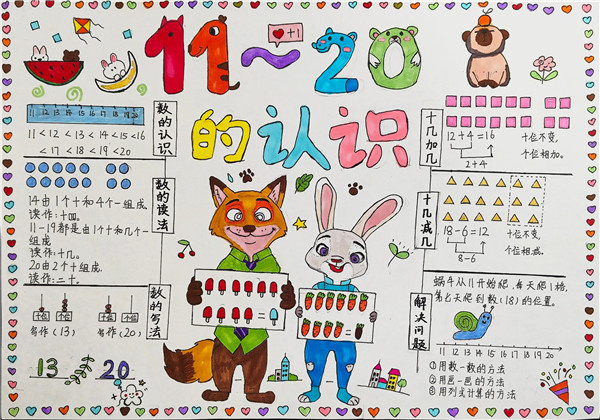 11~20
+1
的认识
数的认识
11 12 13 14 15 16 17 18 19 20
11<12<13<14<15<16
<17<18<19<20
数的读法
14由1个十和4个一组成.
读作:十四。
11-19都是由1个十和几个一
组成.
读作:十几。
20由2个十组成.
读作:二十。
数的写法
十位 个位
十位 个位
写作(13)
写作(20)
13
20
十几加几
12+4=16
2+4
十位不变,
个位相加。
十几减几
18-6=12
8-6
十位不变,
个位相减.
解决问题
蜗牛从11开始爬,每天爬1格,
第七天爬到数(18)的位置。
11 12 13 14 15 16 17 18 19 20
①用数一数的方法
②用画一画的方法
③用列式计算的方法